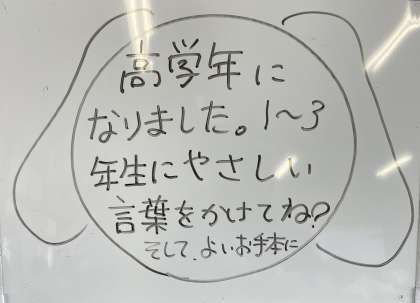 高学年に
なりました。1〜3
年生にやさしい
言葉をかけてね?
そして、よいお手本に